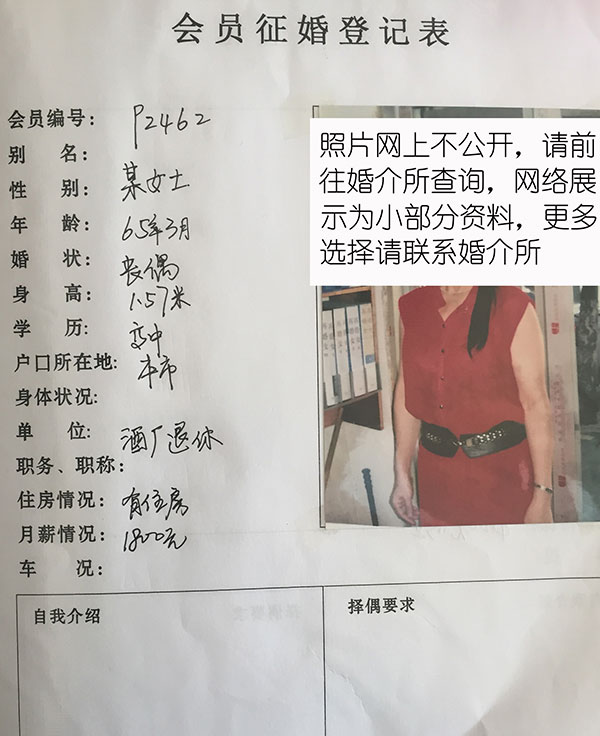 会员征婚登记表
会员编号： P2462
别　名：
性　别： 某女士
年　龄： 65年3月
婚　状： 丧偶
身　高： 1.57米
学　历： 高中
户口所在地: 本市
身体状况:
单　位: 酒厂退休
职务、职称：
住房情况： 有住房
月薪情况： 1800元
车　况：
照片网上不公开，请前
往婚介所查询，网络展
示为小部分资料，更多
选择请联系婚介所
自我介绍
择偶要求